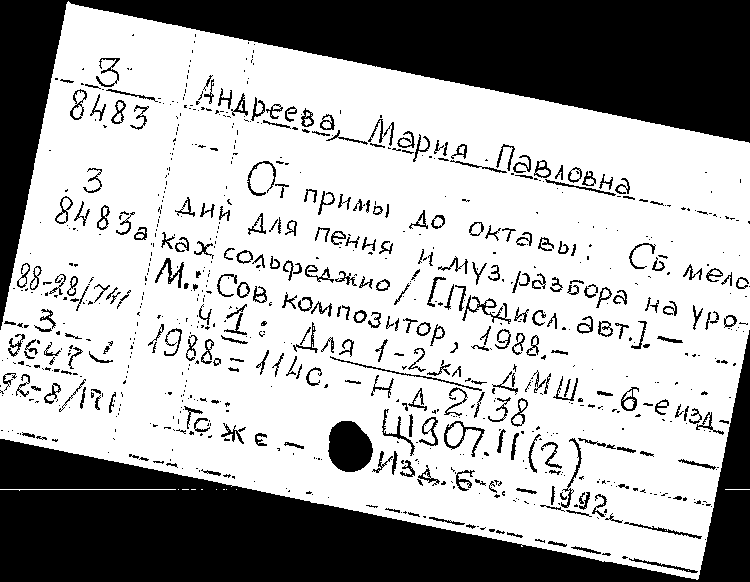 З
8483
З
8483а
88-28/741
З.
9647
92-8/171
Андреева, Мария Павловна
От примы до октавы: Сб. мело-
дий для пения и муз. разбора на уро-
ках сольфеджио / [Предисл. авт.]. —
М.: Сов. композитор, 1988. —
Ч. 1: Для 1-2 кл. ДМШ. — 6-е изд. —
1988. = 114с. — Н. д. 2138
Щ907.11(2)
То же. — Изд. 6-е. — 1992.